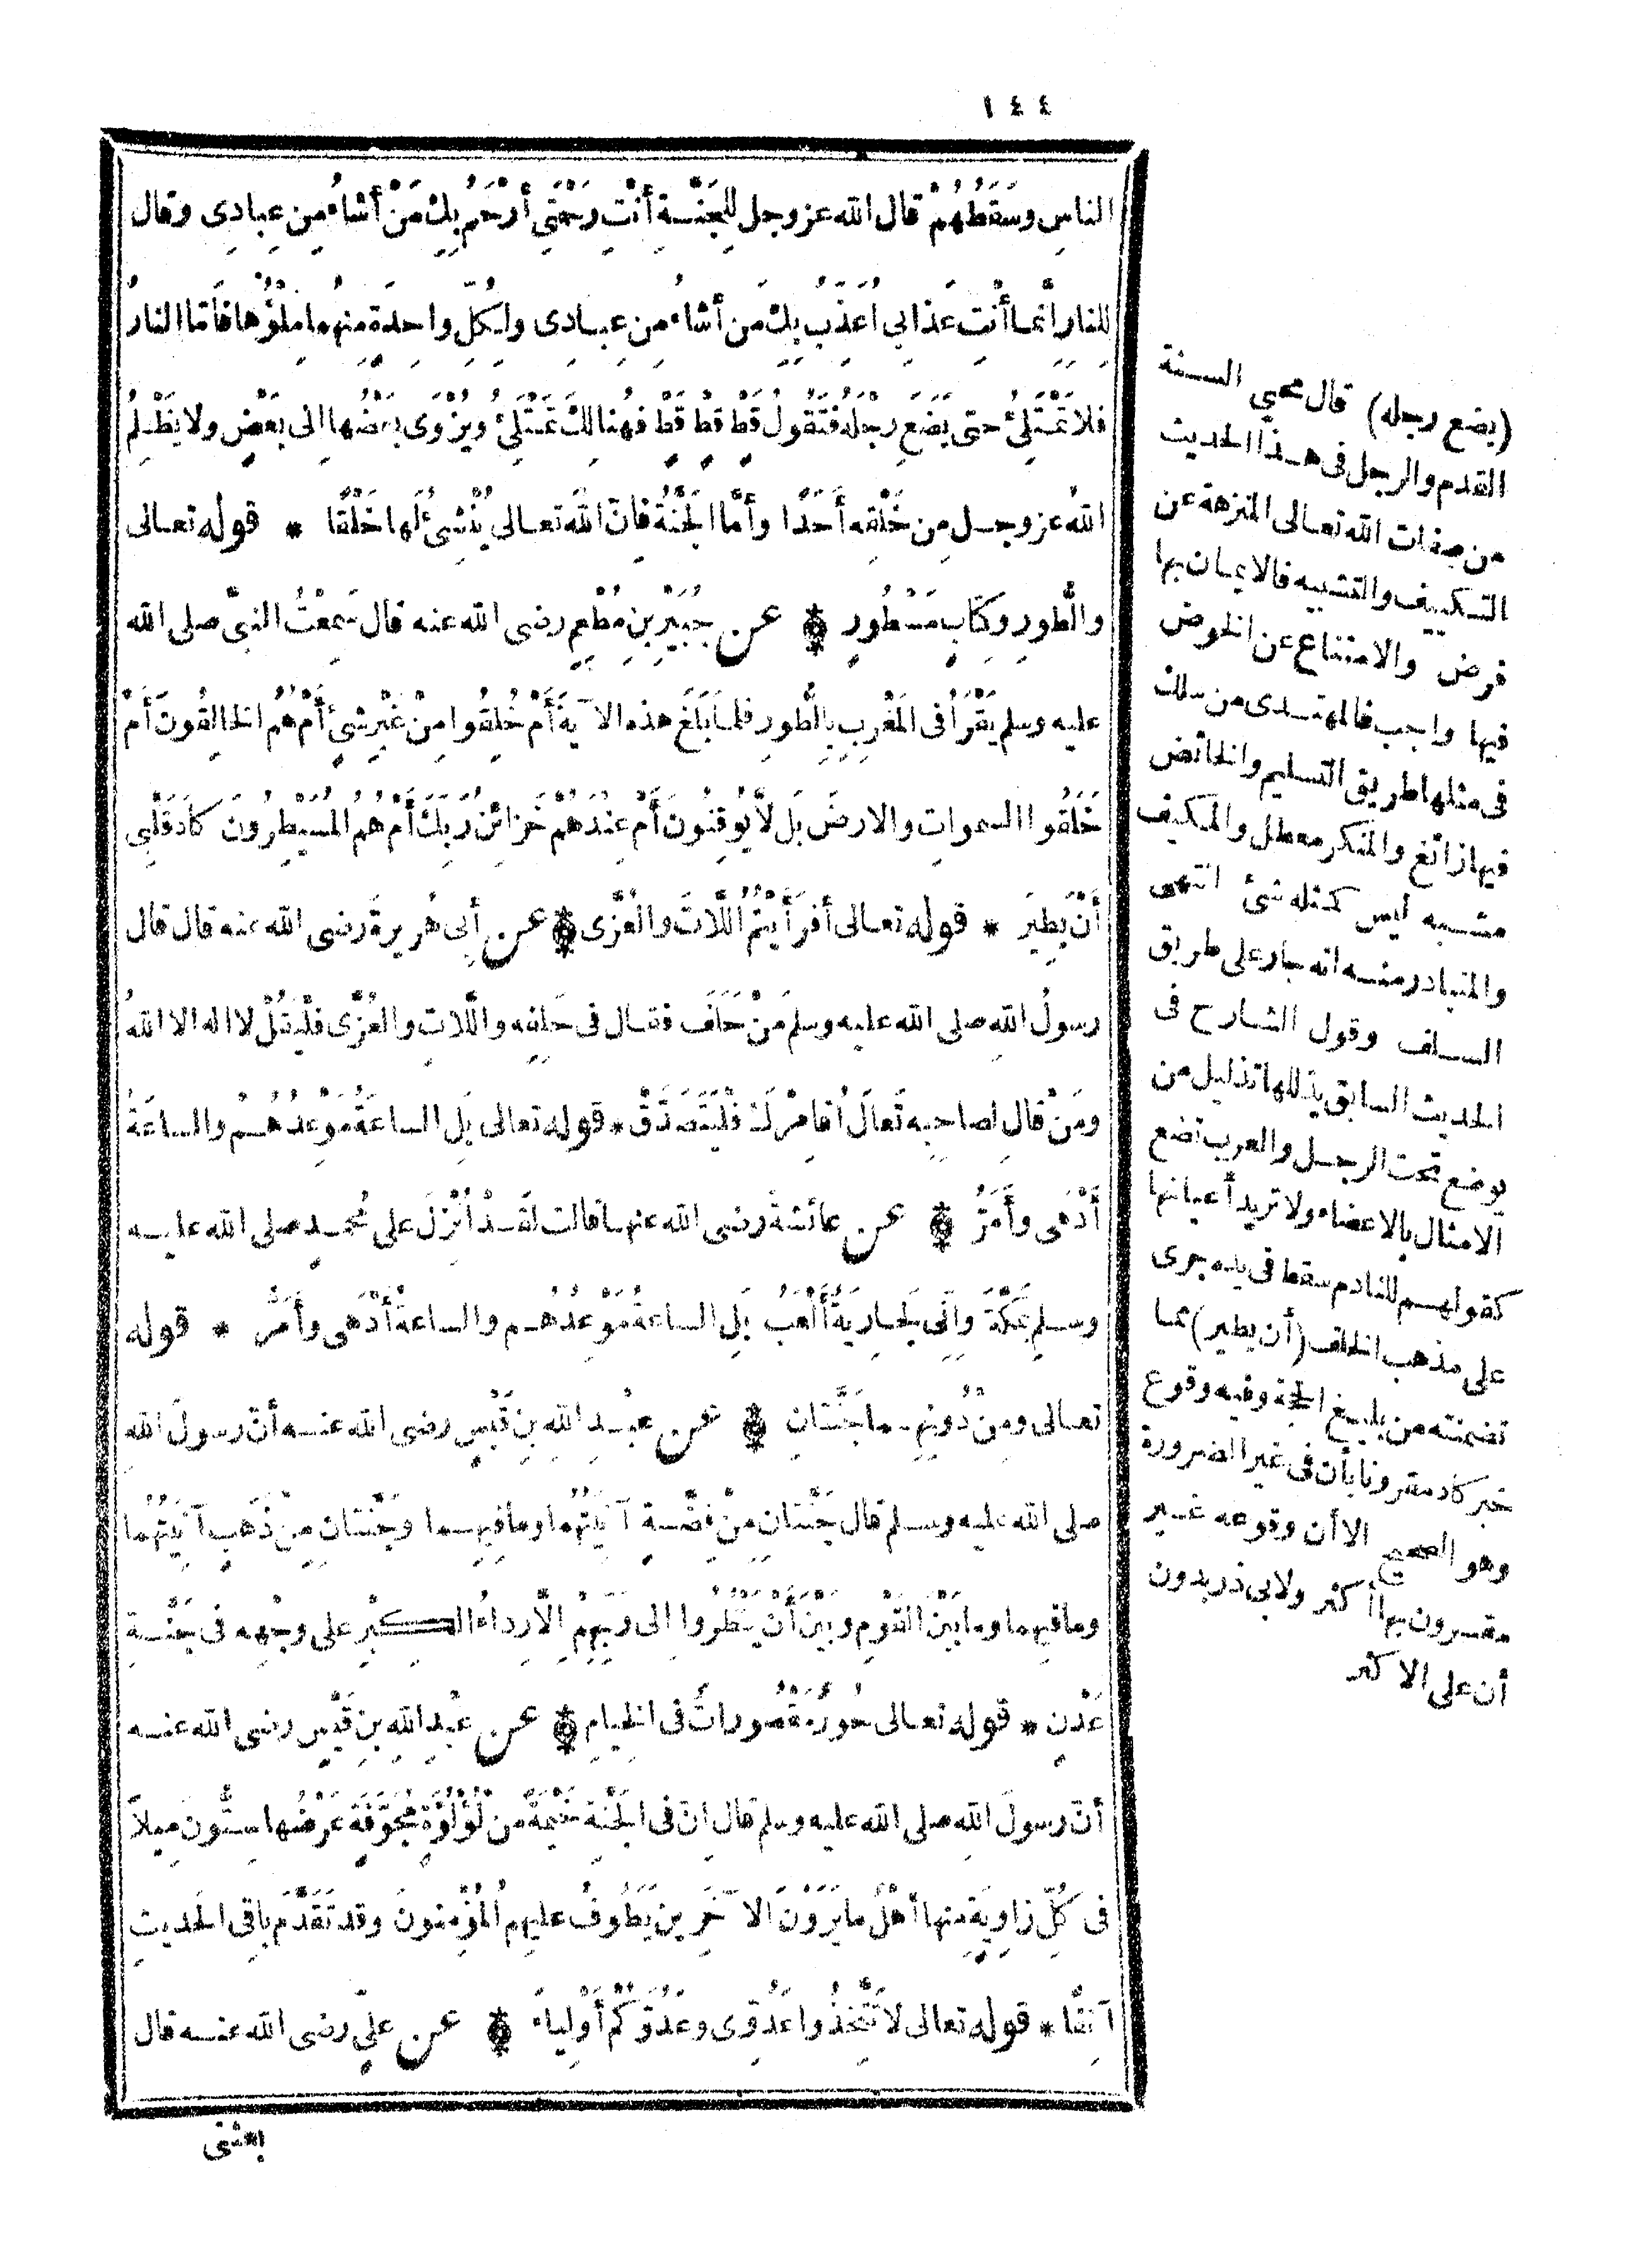 ١٤٤
الناسِ وسَقَطُهُمْ قال الله عز وجل لِلْجَنَّةِ أنْتِ رَحْمَتِي أرْحَمُ بِكِ مَنْ أشاءُ مِن عِبادِى وقال
لِلنارِ إنَّما أنْتِ عَذابِي أُعَذِّبُ بِكِ مَن أشاءُ مِن عِبادِى ولِكُلِّ واحِدَةٍ مِنهُما مِلْؤُها فأَمّا النارُ
فلا تَمْتَلِئُ حتى يَضَعَ رِجْلَهُ فَتَقُولُ قَطْ قَطْ قَطْ فهُنالِكَ تَمْتَلِئُ ويُزْوَى بعْضُها إلى بَعْضٍ ولا يَظْلِمُ
اللهُ عز وجلِ مِن خَلْقِه أَحَدًا وأمَّا الجَنَّةُ فانّ اللهَ تعالى يُنْشِئُ لَها خَلْقًا * قوله تعالى
والُّطورِ وكِتَابٍ مَسْطُورٍ عن جُبَيْرِ بنِ مُطْعِمٍ رضى الله عنه قال سَمِعْتُ النبىّ صلى الله
عليه وسلم يَقْرَأُ فى المَغْرِبِ بِالطُّورِ فلما بَلَغَ هذه الآيةَ أَمْ خُلِقُوا مِنْ غَيْرِ شىْءٍ أَمْ هُمُ الخالِقُونَ أَمْ
خَلَقُوا السمواتِ والارضَ بَل لَّا يُوقِنُونَ أَمْ عِنْدَهُمْ خَزائِنُ رَبِّكَ أَمْ هُمُ المُسَيْطِرُونَ كادَ قَلْبِى
أَنْ يَطِيرَ * قوله تعالى أفَرَأَيْتُمُ اللَّاتَ والعُزَّى عن أبى هُرِيرةَ رضى الله عنه قال قال
رسولُ اللهِ صلى الله عليه وسلم مَنْ حَلَفَ فقال فى حَلِفِه واللَّاتِ والعُزَّى فلْيَقُلْ لا اله الا اللهُ
ومَنْ قال لِصاحِبِه تَعالَ أُقامِرْكَ فلْيَتَصَدَّقْ * قوله تعالى بَلِ الساعَةُ مَوْعِدُهُمْ والساعَةُ
أَدْهَى وأَمَرُّ عن عائشةَ رضى الله عنها قالت لقَدْ أُنْزِلَ على مُحمدٍ صلى الله عليه
وسلم بمَكَّةَ وإِنِّى لَجارِيَةٌ أَلْعَبُ بَلِ الساعةُ مَوْعِدُهُم والساعةُ أَدْهَى وأَمَرُّ * قوله
تعالى ومِنْ دُونِهِما جَنَّتانِ عن عبْدِ الله بنِ قَيْسٍ رضى الله عنه أنّ رسولَ اللهِ
صلى الله عليه وسلم قال جَنَّتانِ مِنْ فِضَّةٍ آنِيَتُهُما وما فِيهِما وجَنّتانِ مِنْ ذَهَبٍ آنِيَتُهُما
وما فيهما وما بَيْنَ القَوْمِ وبَيْنَ أَنْ يَنْظُرُوا إلى رَبِّهِمْ إلَّا رِداءُ الكِبْرِ على وجْهِه فى جَنَّةِ
عَدْنٍ * قوله تعالى حُورٌ مَقْصُوراتٌ فى الخِيامِ عن عبْدِ اللهِ بنِ قَيْسٍ رضى الله عنه
أنّ رسولَ اللهِ صلى الله عليه وسلم قال إنّ فى الجَنَّةِ خَيْمَةً مِنْ لُؤْلُؤَةٍ مُجَوَّفَةٍ عَرْضُها سِتُّونَ مِيلاً
فى كُلِّ زاوِيَةٍ مِنها أهْلٌ ما يَرَوْنَ الآخَرِينَ يَطُوفُ عليهِم المُؤْمِنونَ وقد تَقَدَّمَ باقِى الحَديثِ
آنِفًا * قوله تعالى لا تَتَّخِذُوا عَدُوِّى وعَدُوَّكُمْ أَوْلِياءَ عن علِىٍّ رضى الله عنه قال
بعثنى
(يضع رجله) قال محيي السنة
القدم والرجل فى هذا الحديث
من صفات الله تعالى المنزهة عن
التكييف والتشبيه فالايمان بها
فرض والامتناع عن الخوض
فيها واجب فالمهتدى من سلك
فى مثلها طريق التسليم والخائض
فيها زائغ والمنكر معطل والمكيف
مشبه ليس كمثله شئ انتهى
والمتبادر منه انه جار على طريق
السلف وقول الشارح فى
الحديث السابق يذللها تذليل من
يوضع تحت الرجل والعرب تضع
الامثال بالاعضاء ولا تريد أعيانها
كقولهم للنادم سقط فى يده جرى
على مذهب الخلف (أن يطير) مما
تضمنته من بليغ الحجة وفيه وقوع
خبر كاد مقرونا بأن فى غير الضرورة
وهو الصحيح الا أن وقوعه غير
مقرون بها أكثر ولابى ذر بدون
أن على الاكثر